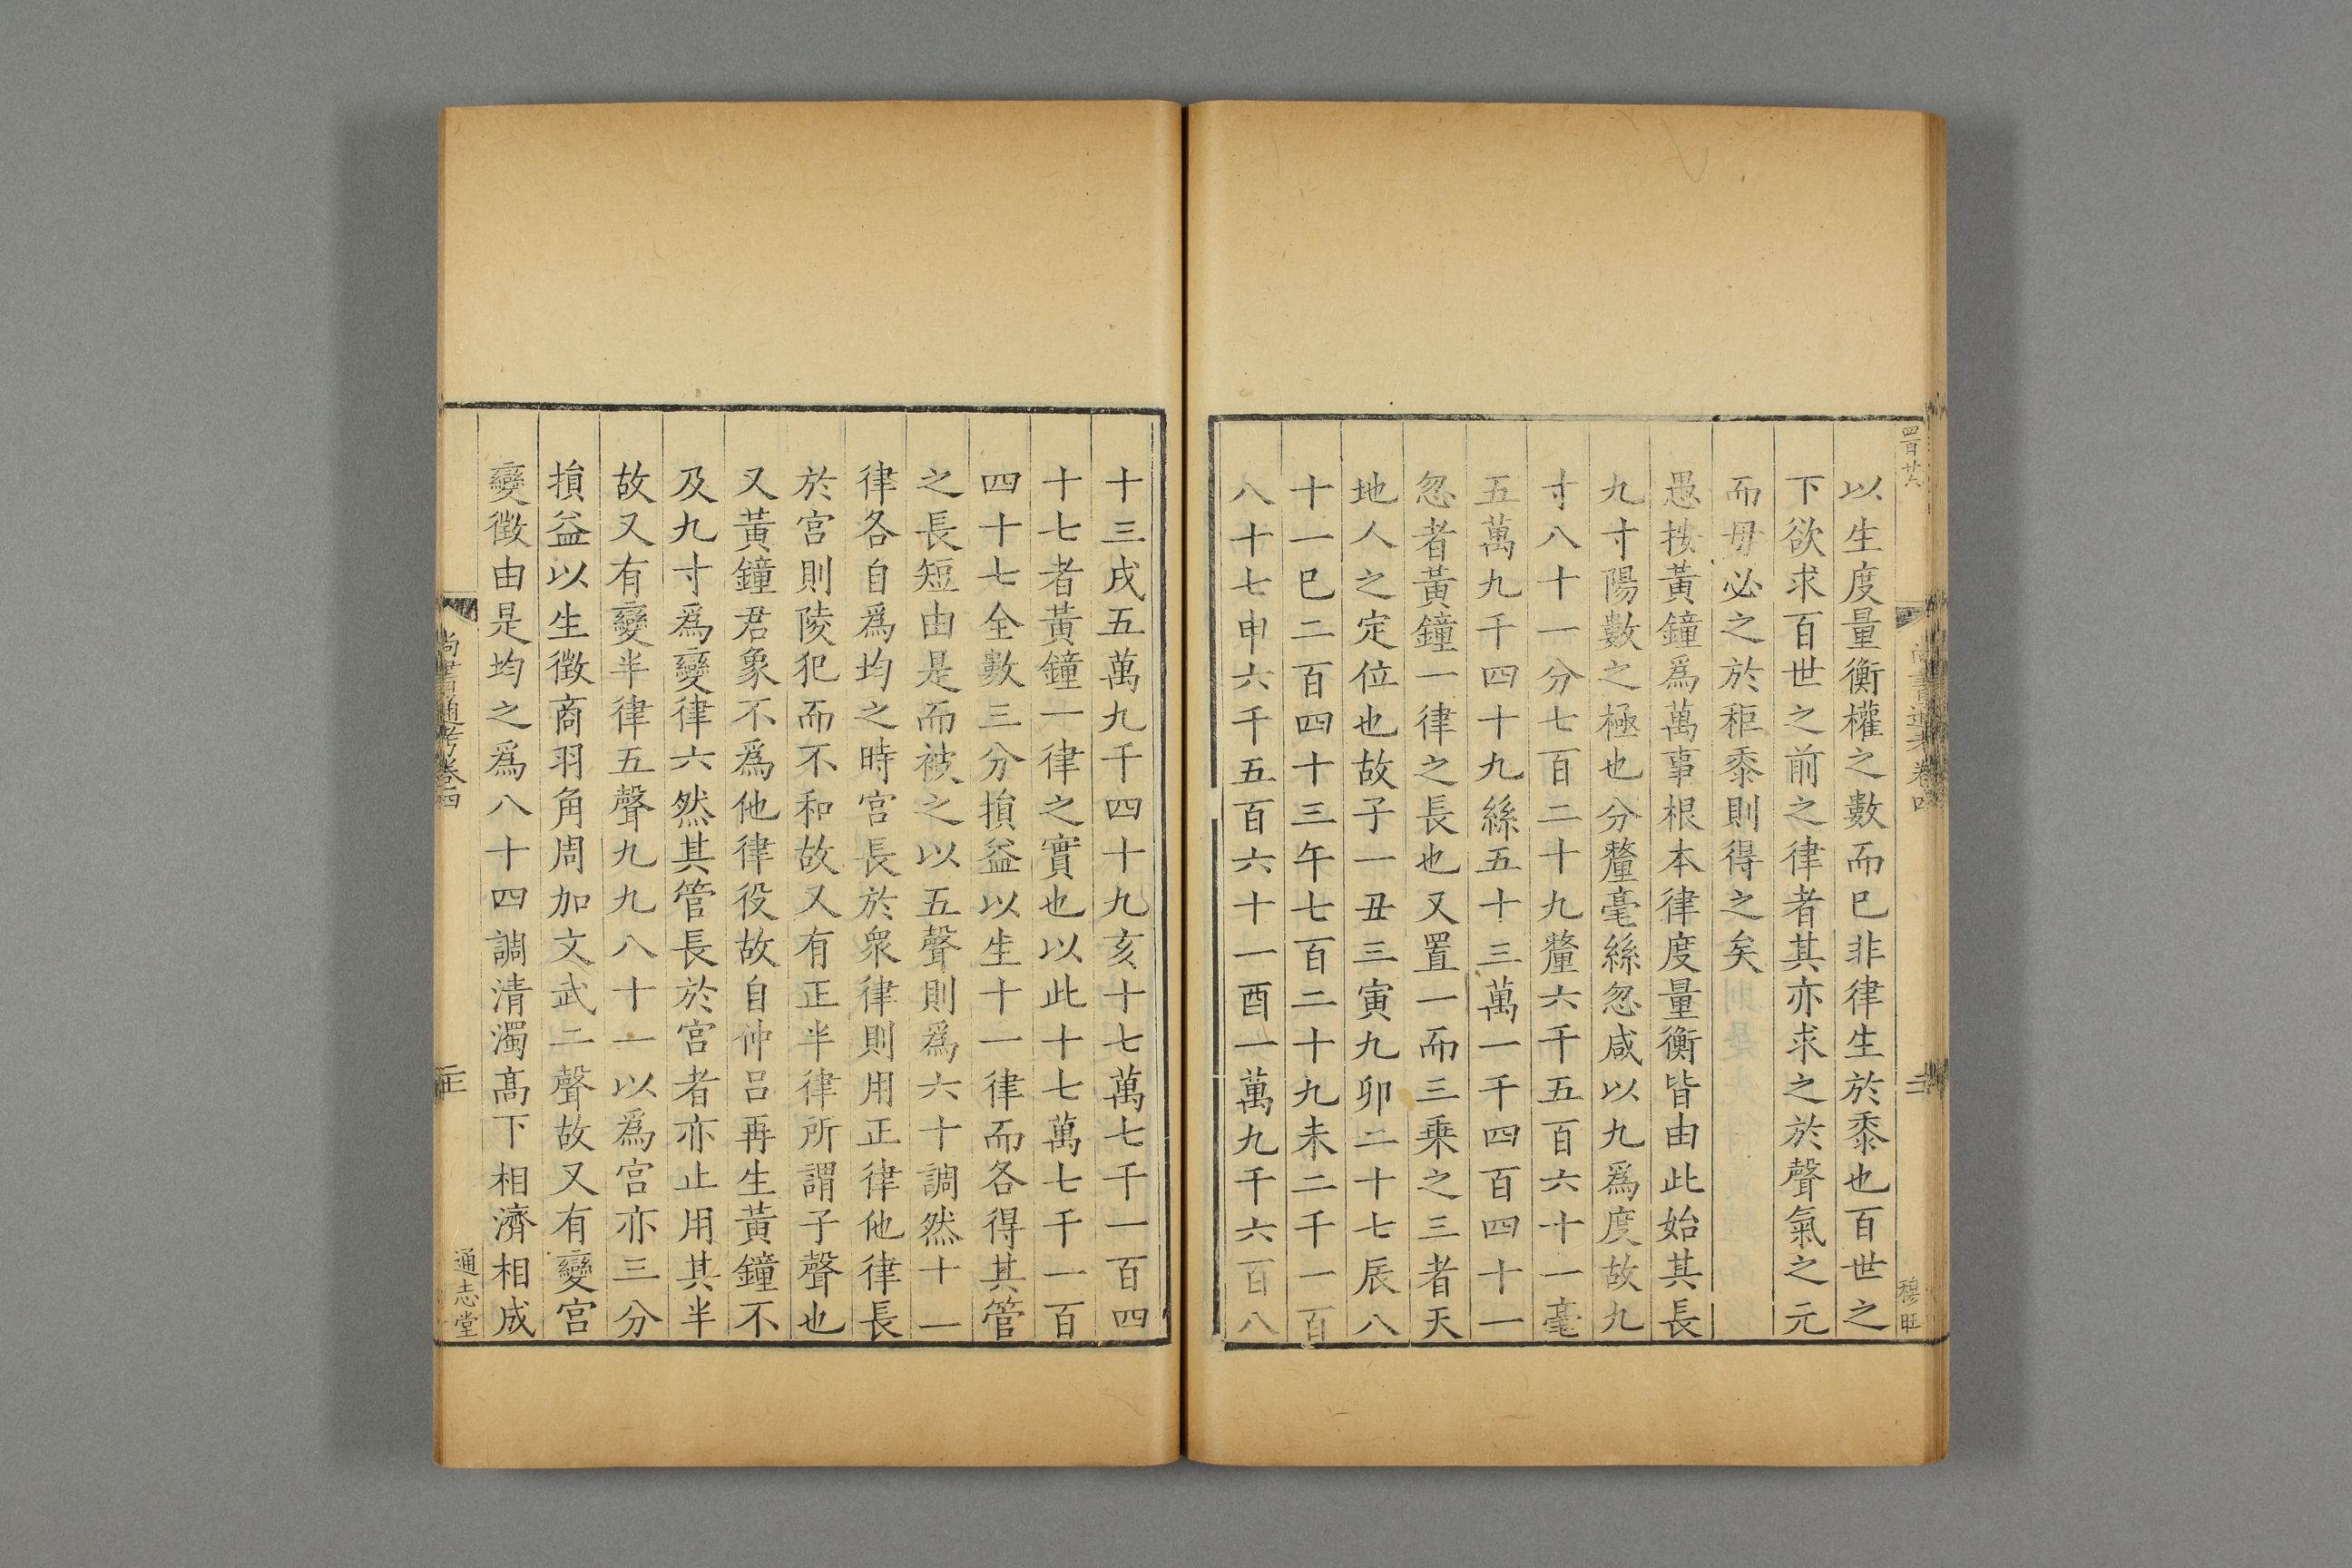 四百廿六
尚書通考卷四
三
穆旺
以生度量衡權之數而巳非律生於黍也百世之
下欲求百世之前之律者其亦求之於聲氣之元
而毋必之於秬黍則得之矣
愚按黃鐘爲萬事根本律度量衡皆由此始其長
九寸陽數之極也分釐毫絲忽咸以九爲度故九
寸八十一分七百二十九釐六千五百六十一毫
五萬九千四十九絲五十三萬一千四百四十一
忽者黃鐘一律之長也又置一而三乘之三者天
地人之定位也故子一丑三寅九卯二十七辰八
十一巳二百四十三午七百二十九未二千一百
八十七申六千五百六十一酉一萬九千六百八
十三戌五萬九千四十九亥十七萬七千一百四
十七者黃鐘一律之實也以此十七萬七千一百
四十七全數三分損益以生十一律而各得其管
之長短由是而被之以五聲則爲六十調然十一
律各自爲均之時宮長於衆律則用正律他律長
於宮則陵犯而不和故又有正半律所謂子聲也
又黃鐘君象不爲他律役故自仲呂再生黃鐘不
及九寸爲變律六然其管長於宮者亦止用其半
故又有變半律五聲九九八十一以爲宮亦三分
損益以生徵商羽角周加文武二聲故又有變宮
變徵由是均之爲八十四調清濁高下相濟相成
尚書通考卷四
通志堂